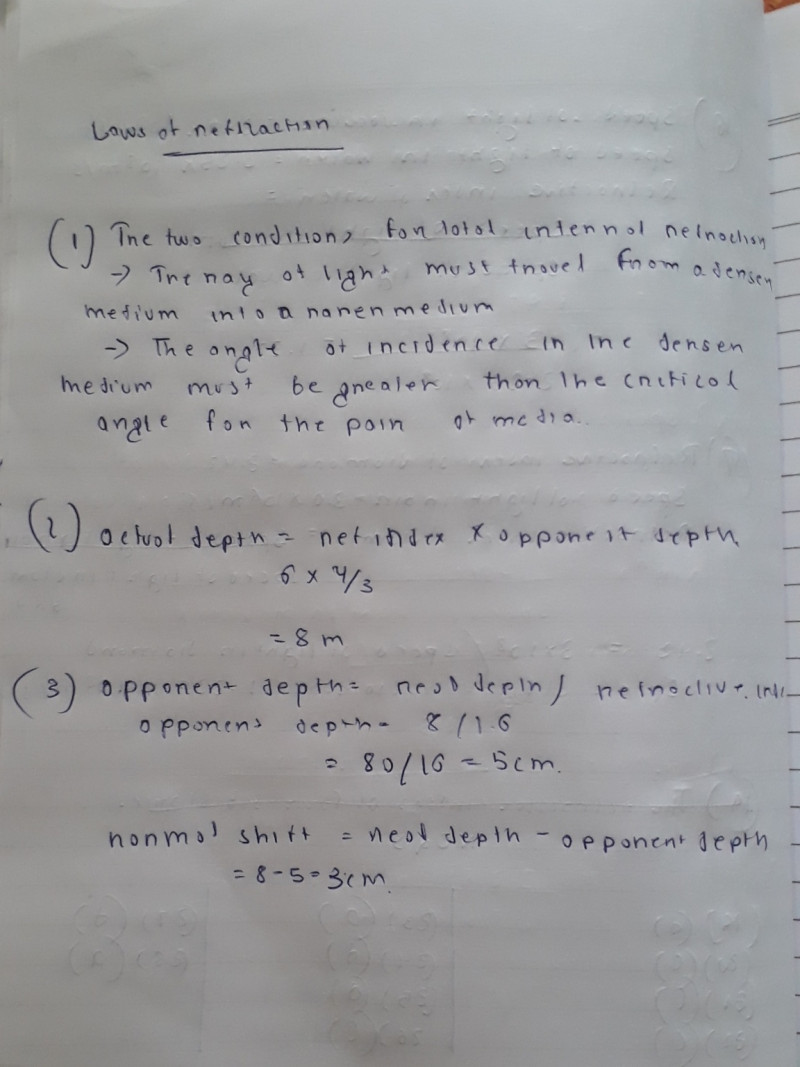 Laws of refraction
(1) The two conditions for total internal refraction
→ The ray of light must travel from a denser
medium into a rarer medium
→ The angle of incidence in the denser
medium must be greater than the critical
angle for the pair of media.
(2) actual depth = ref index × apparent depth
6 × 4/3
= 8 m
(3) apparent depth = real depth / refractive. ind
apparent depth = 8/1.6
= 80/16 = 5cm.
normal shift = real depth - apparent depth
= 8-5=3cm.